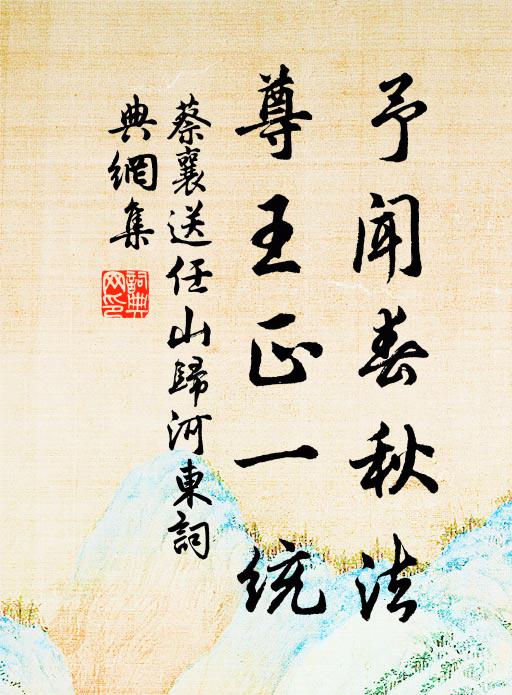 予闻春秋法
尊王正一统
蔡襄送任山歸河東詞
典網集
詞典网印